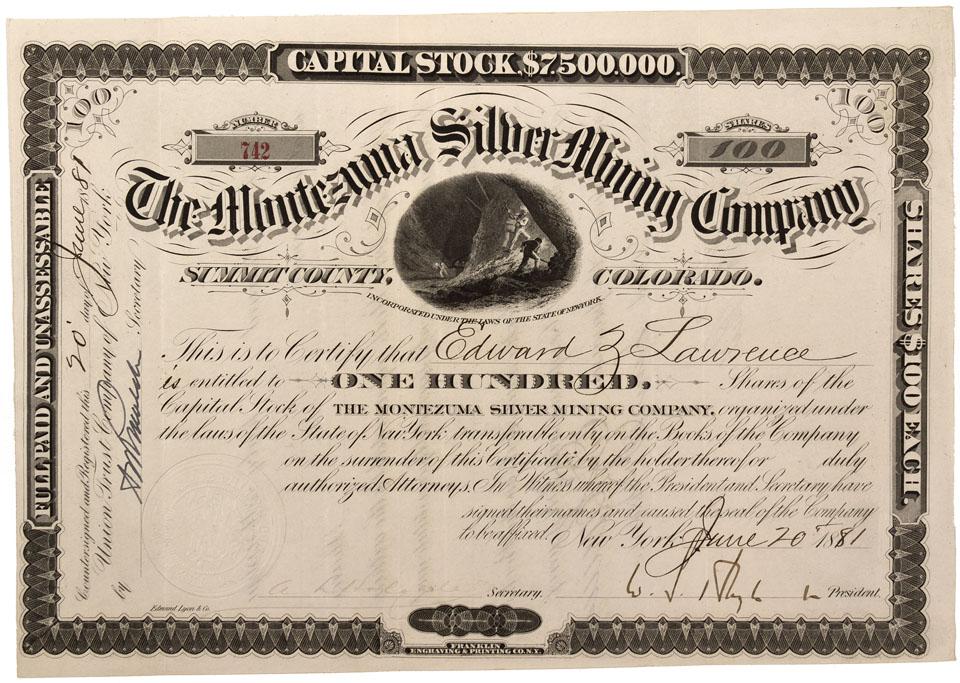 CAPITAL STOCK, $7.500.000.
100
100
NUMBER
742
SHARES
100
The Montezuma Silver Mining Company
SUMMIT COUNTY, COLORADO.
INCORPORATED UNDER THE LAWS OF THE STATE OF NEW YORK.
This is to Certify that Edward Z Lawrence
is entitled to ONE HUNDRED. Shares of the
Capital Stock of THE MONTEZUMA SILVER MINING COMPANY, organized under
the laws of the State of New York transferable only on the Books of the Company
on the surrender of this Certificate by the holder thereof or duly
authorized Attorneys. In Witness whereof the President and Secretary have
signed their names and caused the seal of the Company
to be affixed. New York, June 20 1881
Secretary. President.
FULL PAID AND UNASSESSABLE
Countersigned and Registered this 20 day June 1881
Union Trust Company of New York.
by Secretary
SHARES $100 EACH.
Edmund Lyon & Co.
FRANKLIN
ENGRAVING & PRINTING CO. N.Y.